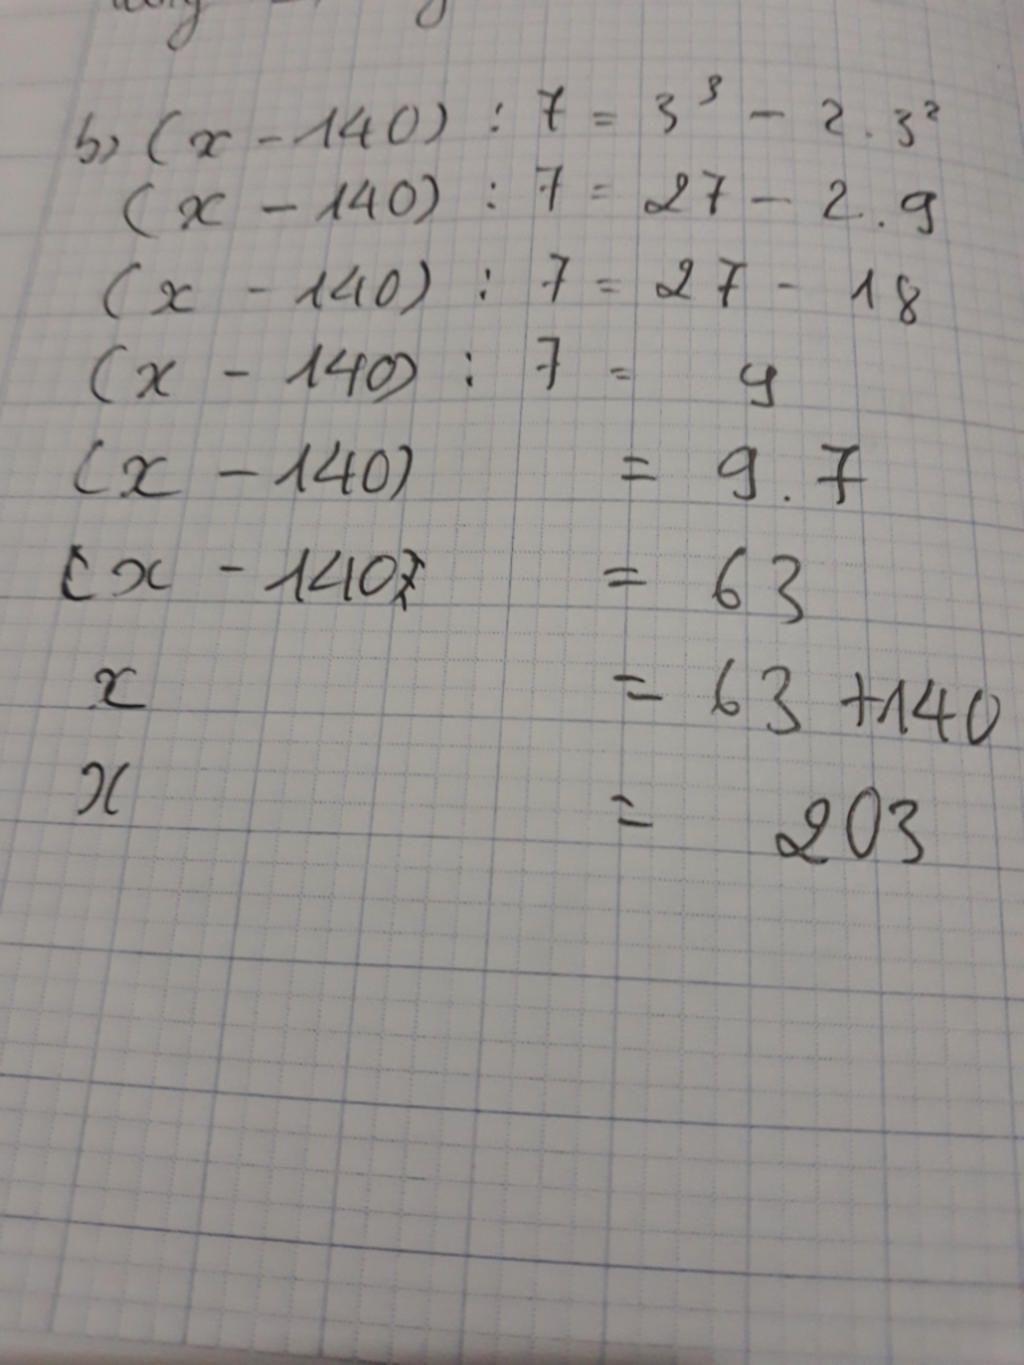 b) (x - 140) : 7 = 3³ - 2 . 3²
(x - 140) : 7 = 27 - 2 . 9
(x - 140) : 7 = 27 - 18
(x - 140) : 7 = 9
(x - 140) = 9 . 7
x - 140 = 63
x = 63 + 140
x = 203